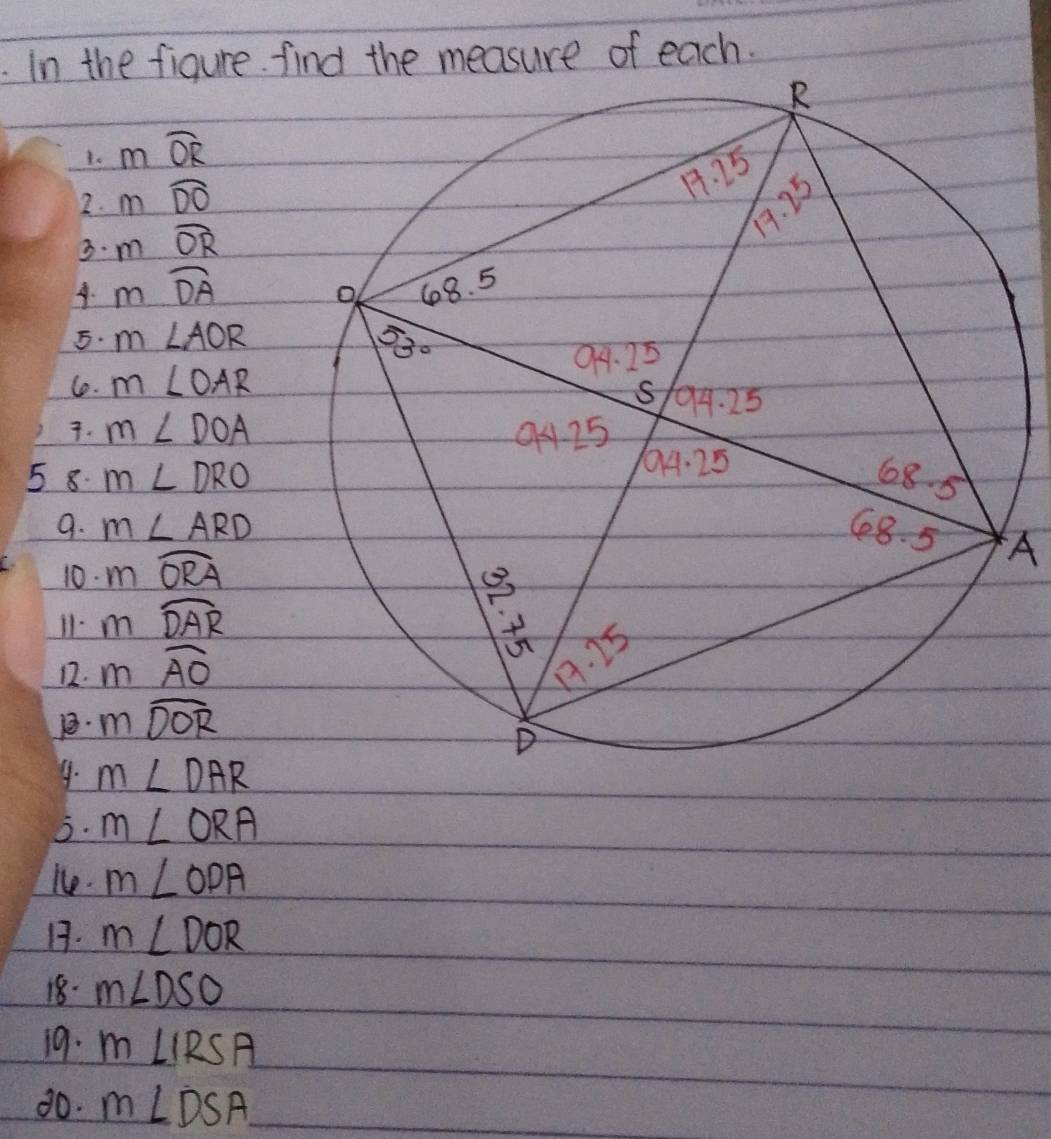 . In the figure. find the measure of each.
1. m OR
2. m DO
3. m OR
4. m DA
5. m ∠AOR
6. m ∠OAR
7. m ∠DOA
5 8. m ∠DRO
9. m ∠ARD
10. m ORA
11. m DAR
12. m AO
13. m DOR
4. m ∠DAR
5. m ∠ORA
16. m ∠ODA
17. m ∠DOR
18. m∠DSO
19. m ∠RSA
20. m ∠DSA
R
17.25
17.25
O
68.5
53°
94.25
S
94.25
94.25
94.25
68.5
68.5
A
32.75
17.25
D